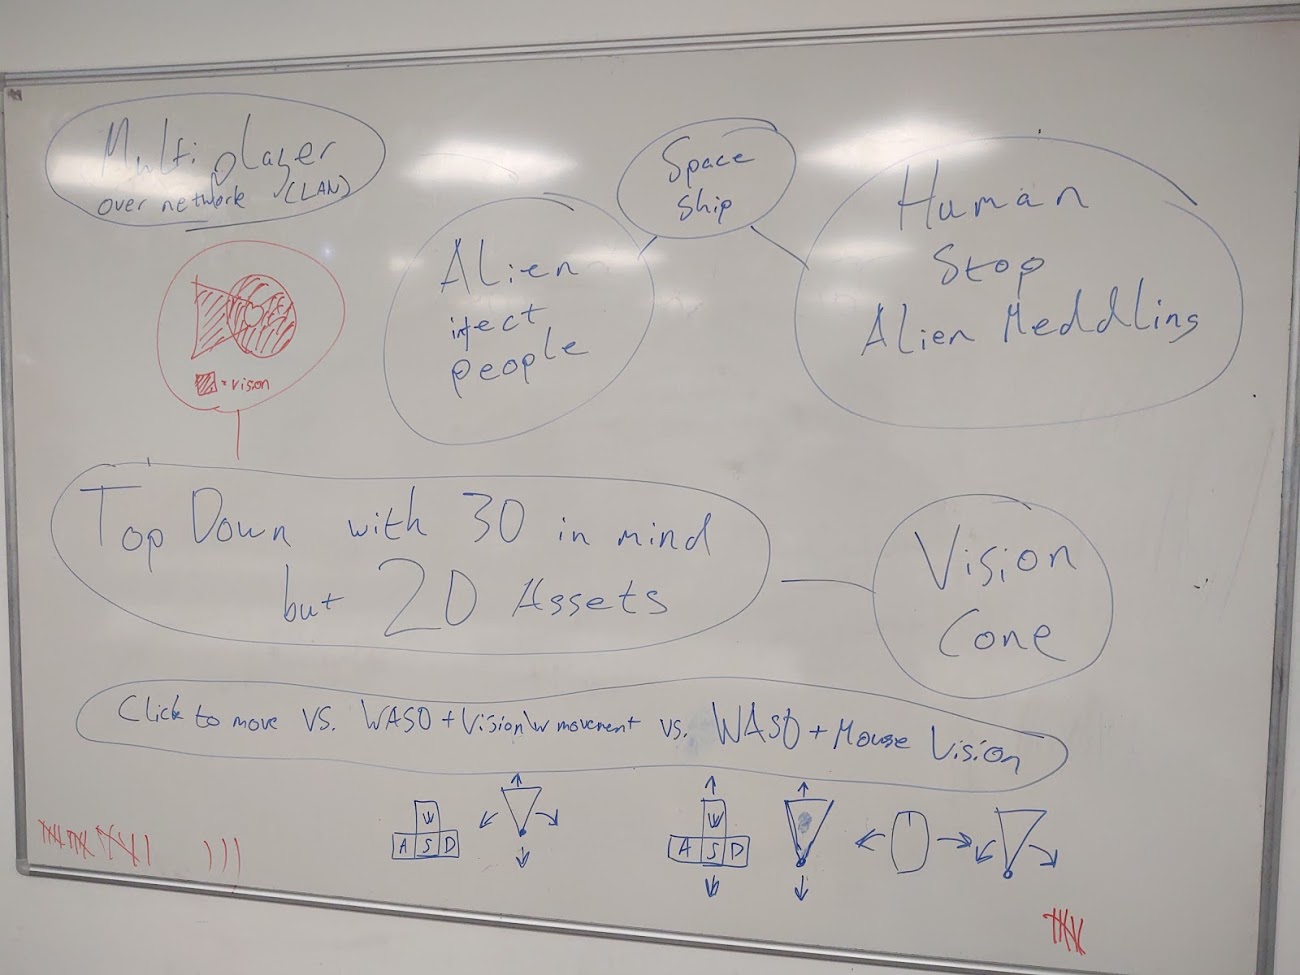 Multiplayer
over network (LAN)
Space
Ship
Alien
infect
people
Human
Stop
Alien Meddling
= vision
Top Down with 3D in mind
but 2D Assets
Vision
Cone
Click to move VS. WASD + Vision \w movement vs. WASD + Mouse Vision
W
A S D
W
A S D